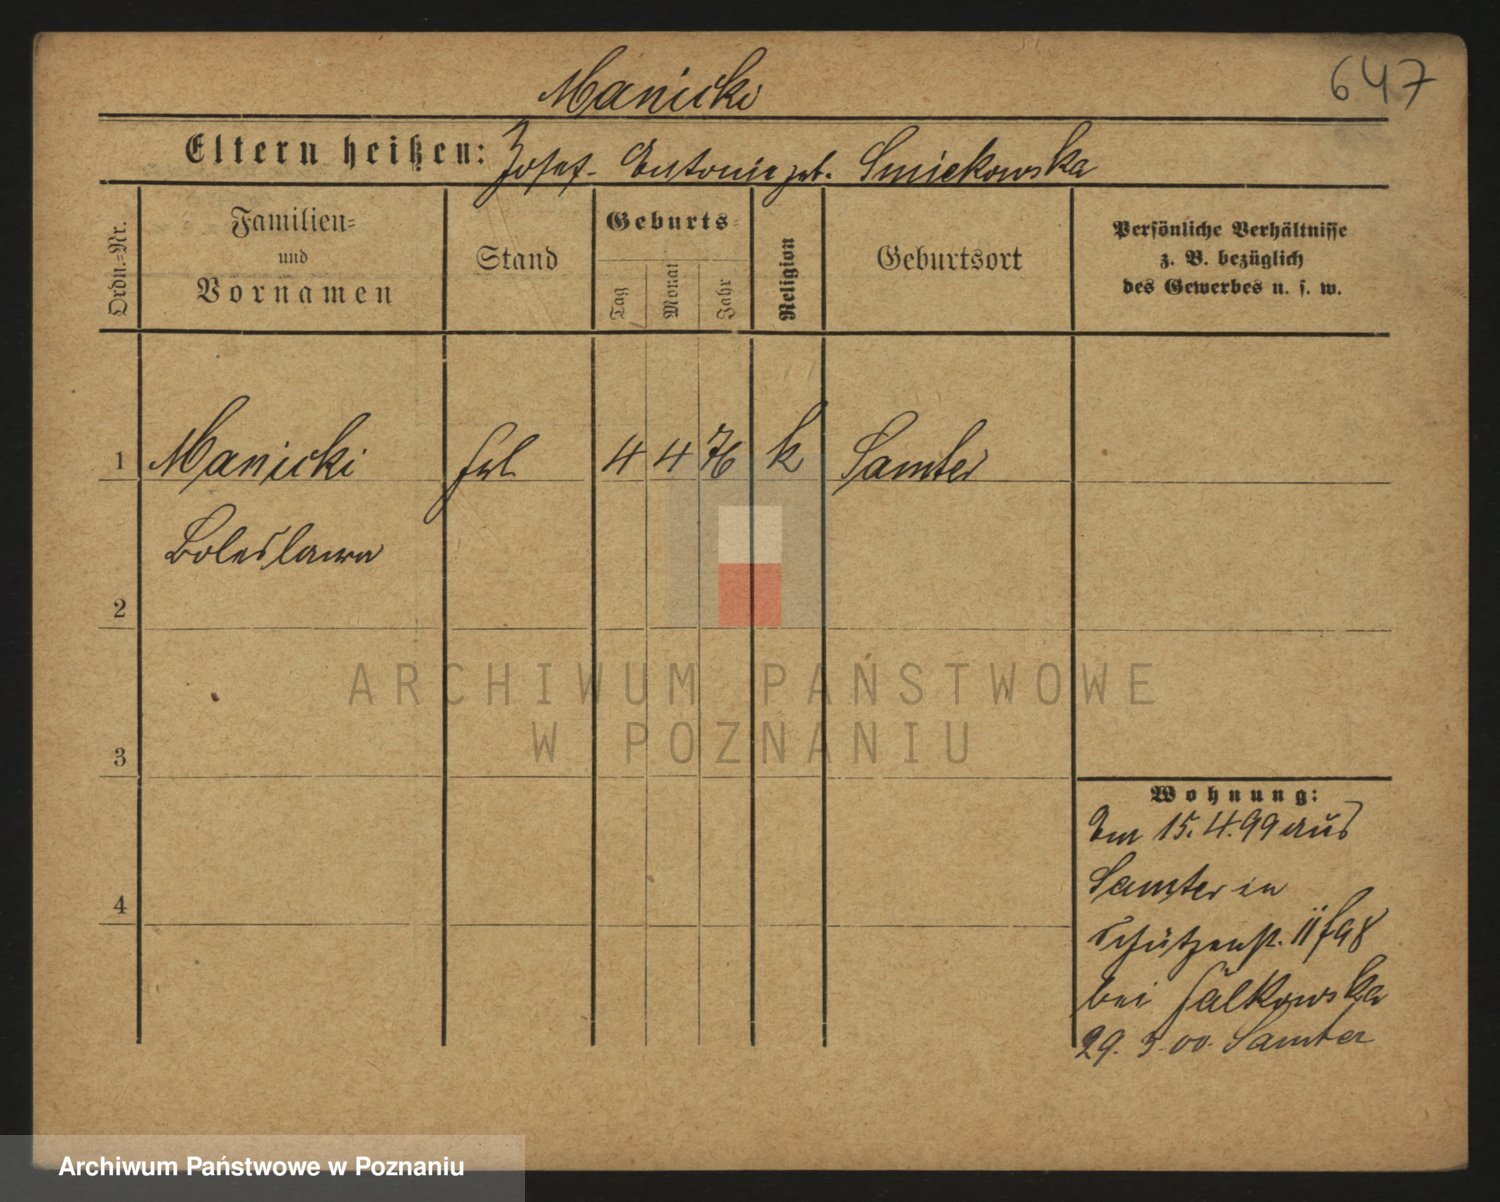 647
Manicki
Eltern heißen: Josef - Antonie geb. Smiekowska
Ordn.-Nr.
Familien-
und
Vornamen
Stand
Geburts-
Tag
Monat
Jahr
Religion
Geburtsort
Persönliche Verhältnisse
z. B. bezüglich
des Gewerbes u. s. w.
1 Manicki frl 4 4 76 k Samter
Boleslawa
2
3
4
ARCHIWUM PAŃSTWOWE
W POZNANIU
Wohnung:
15.4.99 aus
Samter in
Schützenstr. 11
bei Falkowska
29. 3. 00. Samter
Archiwum Państwowe w Poznaniu